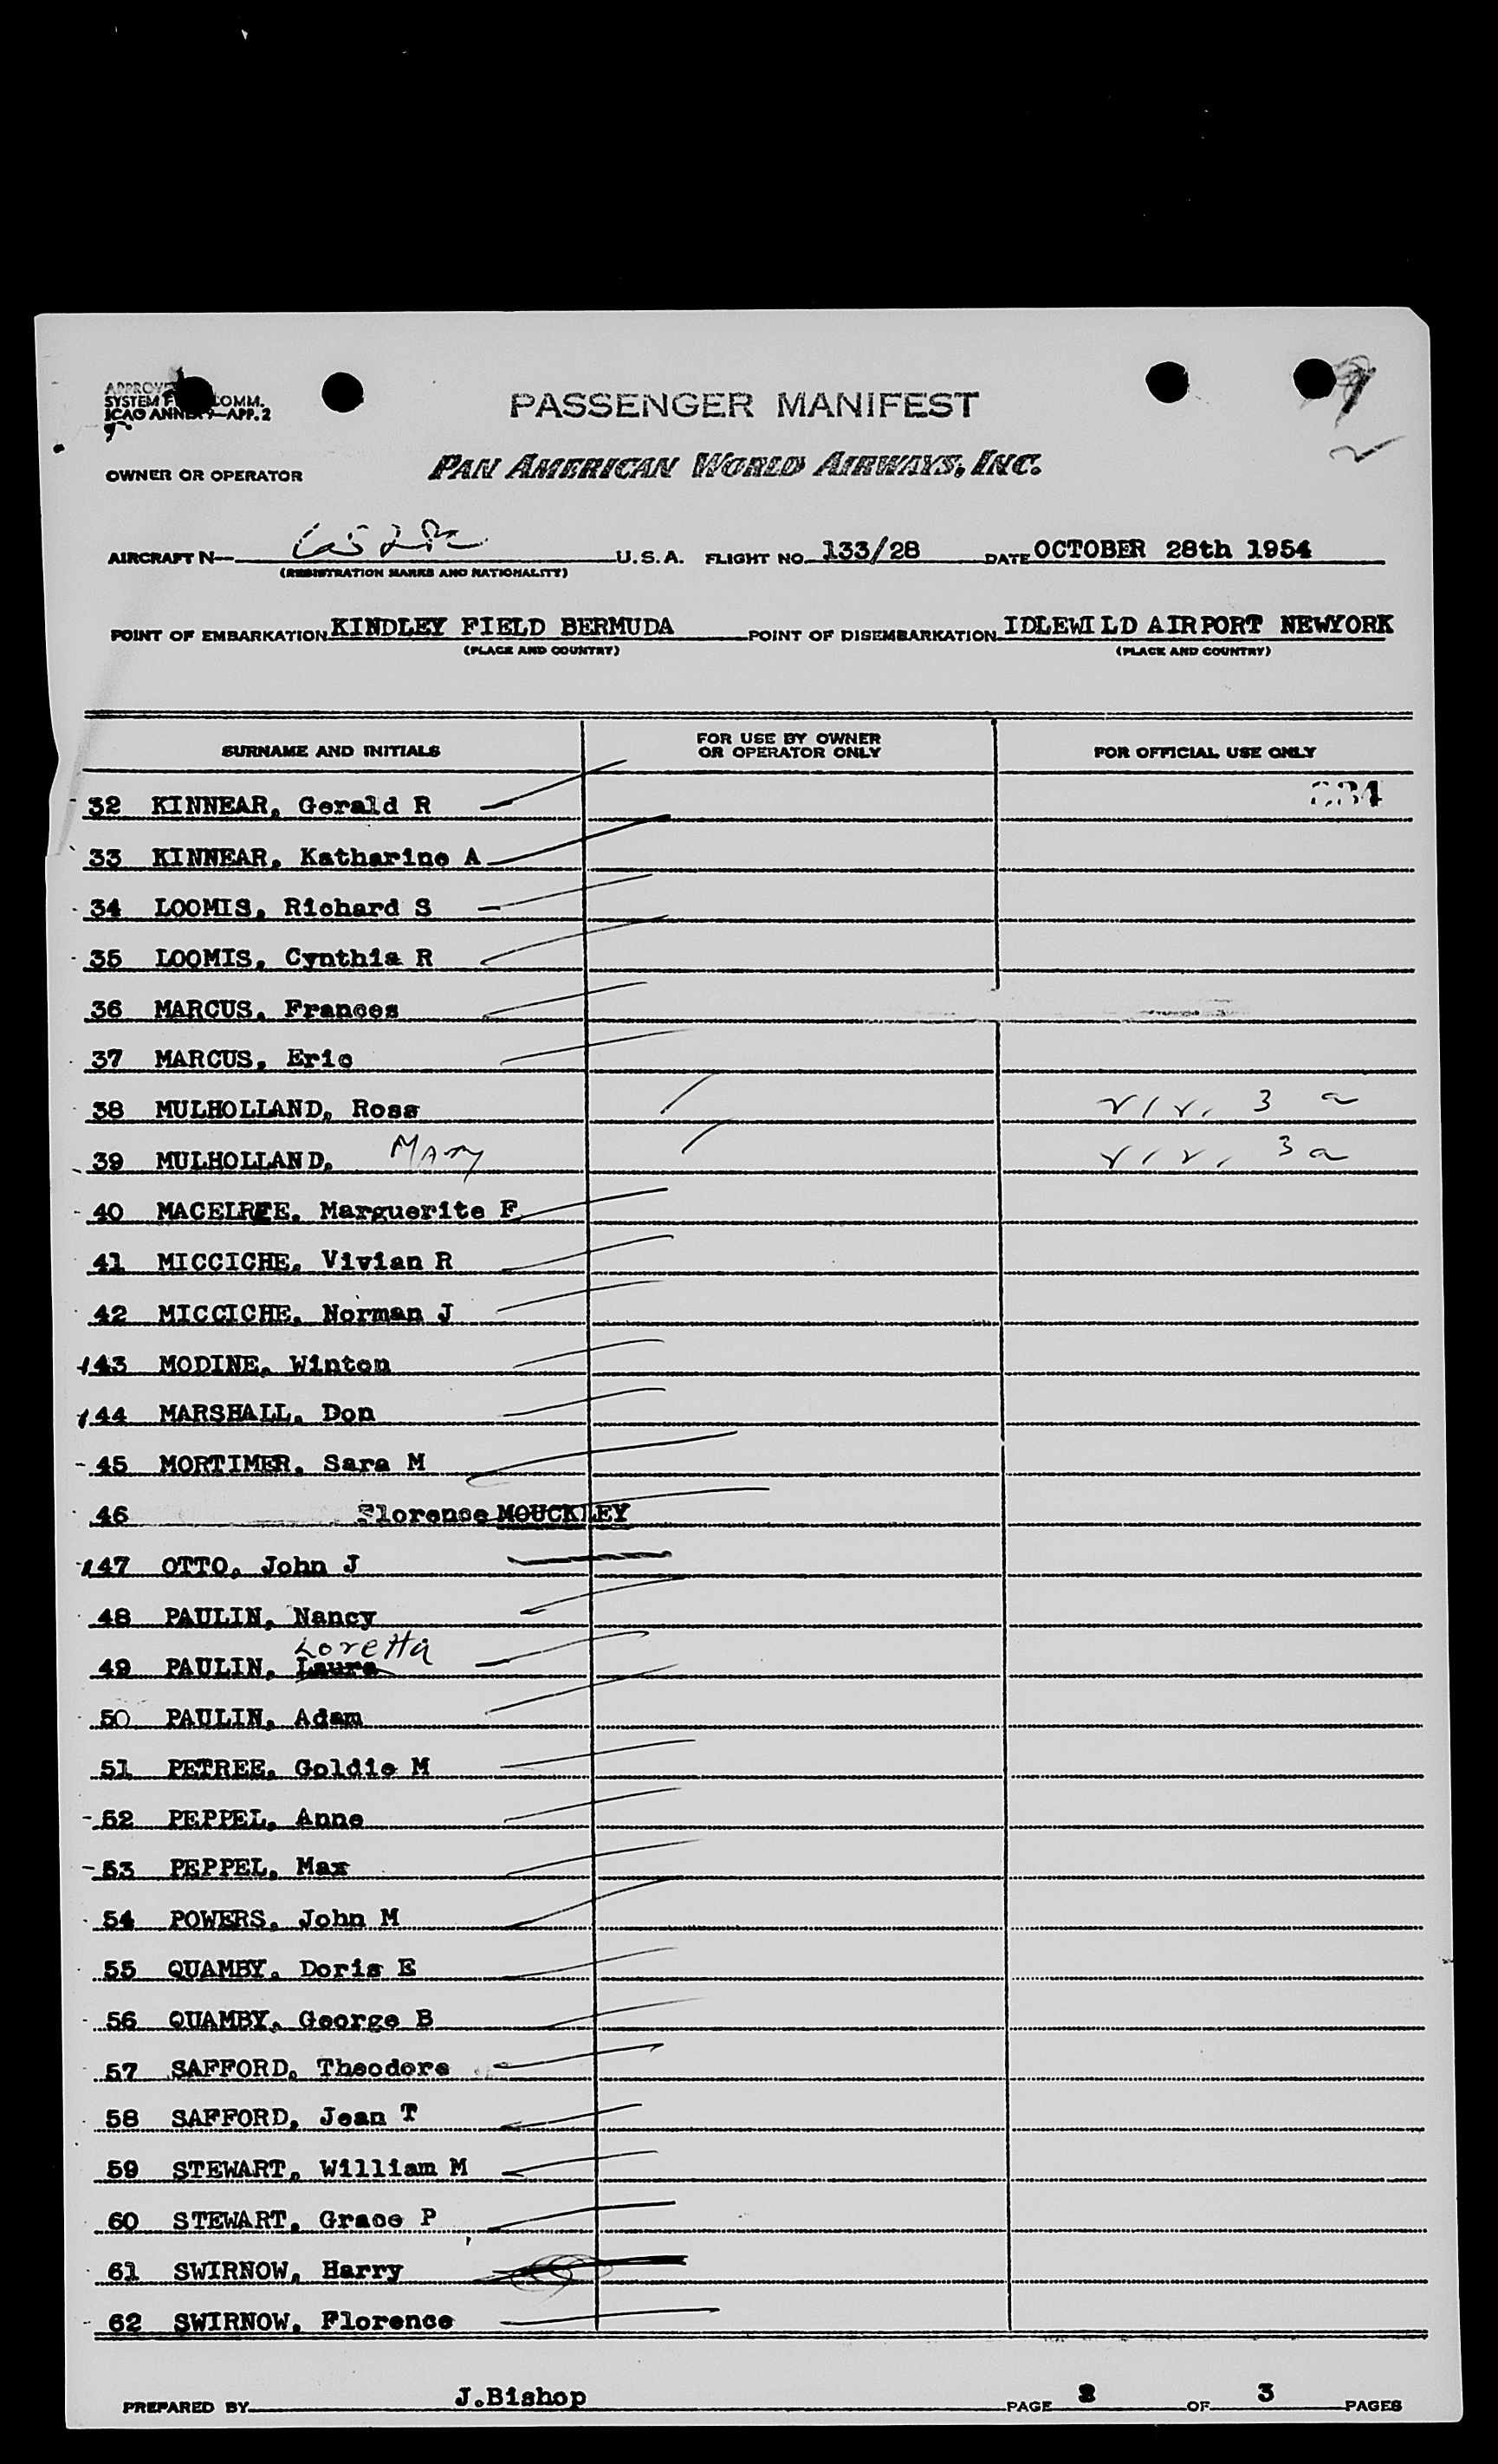 SYSTEM
ICAO ANNEX 9—APP. 2
PASSENGER MANIFEST
OWNER OR OPERATOR PAN AMERICAN WORLD AIRWAYS, INC.
AIRCRAFT N— U.S.A. FLIGHT NO. 133/28 DATE OCTOBER 28th 1954
(REGISTRATION MARKS AND NATIONALITY)
POINT OF EMBARKATION KINDLEY FIELD BERMUDA POINT OF DISEMBARKATION IDLEWILD AIRPORT NEWYORK
(PLACE AND COUNTRY) (PLACE AND COUNTRY)
SURNAME AND INITIALS FOR USE BY OWNER OR OPERATOR ONLY FOR OFFICIAL USE ONLY
32 KINNEAR, Gerald R
33 KINNEAR, Katharine A
34 LOOMIS, Richard S
35 LOOMIS, Cynthia R
36 MARCUS, Frances
37 MARCUS, Eric
38 MULHOLLAND, Ross 3 a
39 MULHOLLAND, Mary 3 a
40 MACELREE, Marguerite F
41 MICCICHE, Vivian R
42 MICCICHE, Norman J
43 MODINE, Winton
44 MARSHALL, Don
45 MORTIMER, Sara M
46 Florence MOUCKLEY
47 OTTO, John J
48 PAULIN, Nancy
49 PAULIN, Laura Loretta
50 PAULIN, Adam
51 PETREE, Goldie M
52 PEPPEL, Anne
53 PEPPEL, Max
54 POWERS, John M
55 QUAMBY, Doris E
56 QUAMBY, George B
57 SAFFORD, Theodore
58 SAFFORD, Jean T
59 STEWART, William M
60 STEWART, Grace P
61 SWIRNOW, Harry
62 SWIRNOW, Florence
PREPARED BY J.Bishop PAGE 2 OF 3 PAGES